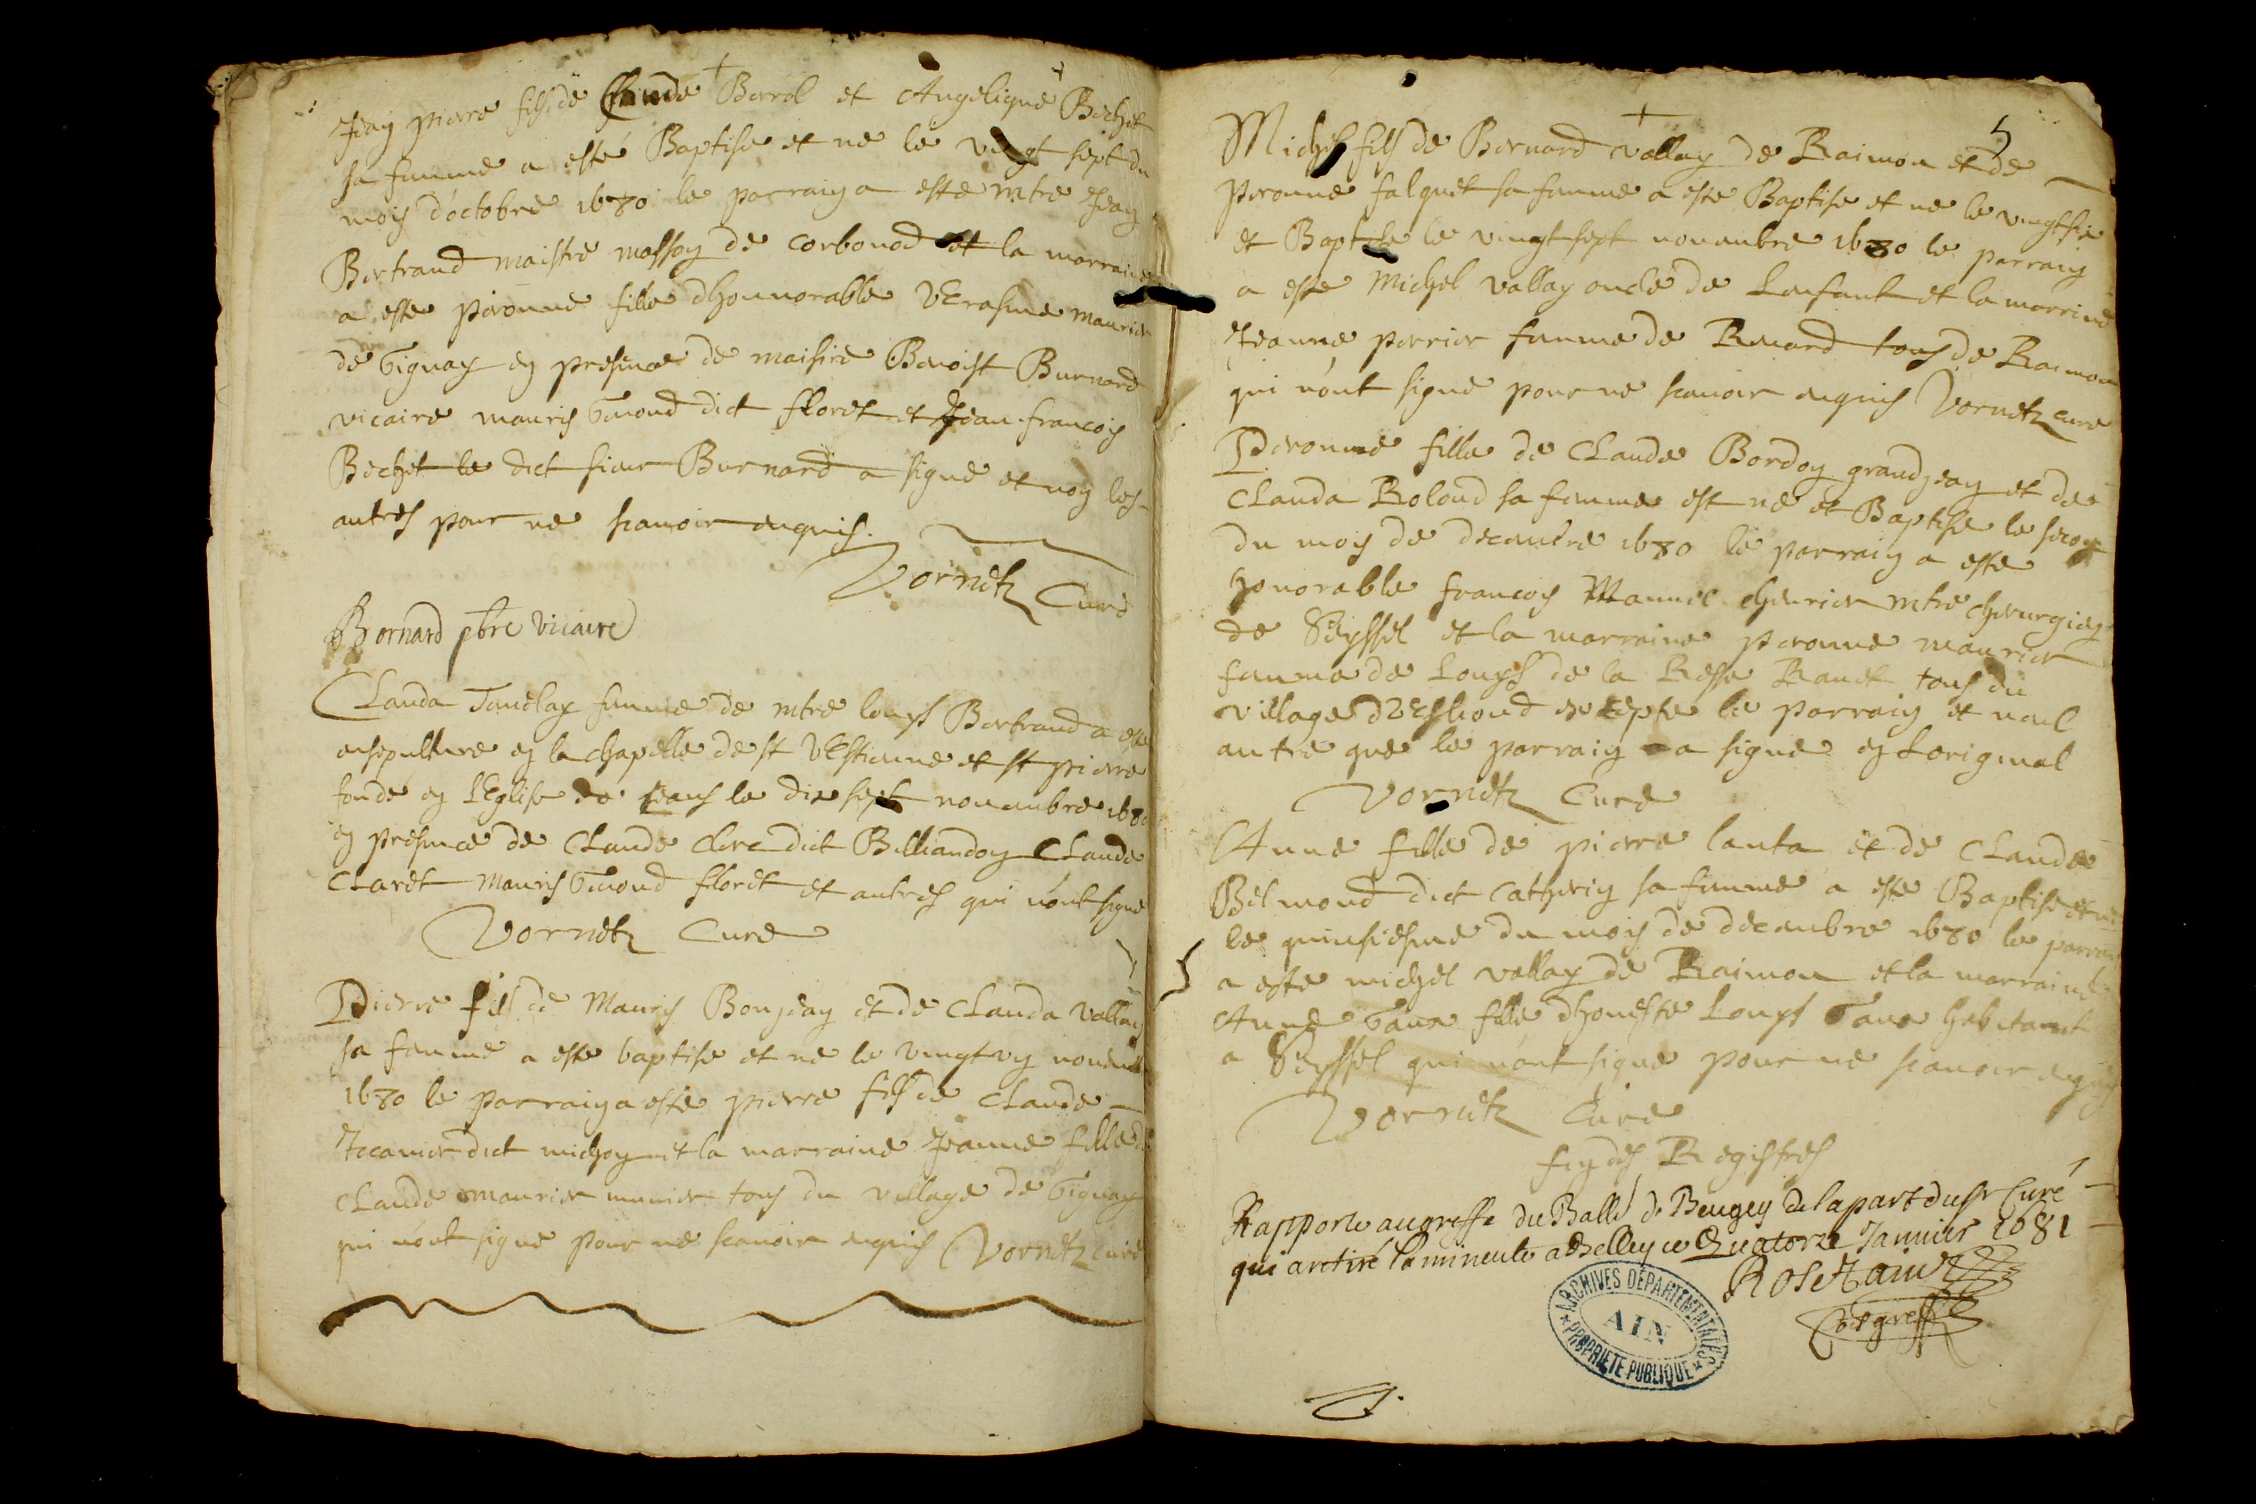 Jean pierre fils de Claude Borrol et Angelique Bechet
sa famme a esté Baptise et ne le vingt sept du
mois d'octobre 1680 le parrain a este mtre Jean
Bertrand maistre masson de Corbonod et la marraine
a este peronne fille dhonnorable Erasme maurier
de Gignay en presence de maisire Benoist Burnard
vicaire mauris Gmond dict floret et Jean francois
Bechet le dict sieur Burnard a signe et non les
autres pour ne scavoir enquis.
Vornetz Curé
Bornard pbre vicaire
Clauda Tauclay famme de mtre louys Bertrand a este
ensepulture en la chapelle de st Estienne et st pierre
fonde en LEglise de ceans le dix sept novembre 1680
en presence de Claude Clerc dict Billiandon Claude
Claret mauris Gmond floret et autres qui n'ont signe
Vornetz Cure
Pierre fils de Mauris Bonjean et de Clauda Vallay
sa famme a este baptise et ne le vingt un novembre
1680 le parrain a este pierre fils de Claude
Jocanier dict michon et la marraine Jeanne fille de
Claude maurier munier tous du village de Gignay
qui n'ont signe pour ne scavoir enquis Vornetz curé
5
Michel fils de Bernard vallay de Raimon et de
peronne falquet sa famme a este Baptise et ne le vingtsix
et Baptise le vingt sept novembre 1680 le parrain
a este Michel vallay oncle de Lenfant et la marrine
Jeanne perrier famme de Renard tous de Raimon
qui n'ont signe pour ne scavoir enquis Vornetz cure
Peronne fille de Claude Bordon grandjean et de
Clauda Rolond sa famme est ne et Baptise le secont
du mois de decembre 1680 le parrain a este
honorable francois Manuel chevrier mtre chirurgien
de Seyssel et la marraine peronne maurier
famme de Louys de la Resse Ravet tous du
village dEslioud excepte le parrain et nul
autre que le parrain a signe en Loriginal
Vornetz Cure
Anne fille de pierre lanta et de Claude
Belmond dict Catherin sa famme a este Baptise et ne
le quinsiesme du mois de decembre 1680 le parrain
a este michel vallay de Raimon et la marraine
Anne Gava fille dhoneste Louys Gava habitant
a Seyssel qui n'ont signe pour ne scavoir enquis
Vornetz Cure
fin des Registres
Rapporte au greffe du Balli de Beugey de la part du sr Curé
qui a retiré la minente a Belley ce Quatorze Janvier 1681
Rosetain
Cõis greff
ARCHIVES DÉPARTEMENTALES
AIN
PROPRIÉTÉ PUBLIQUE